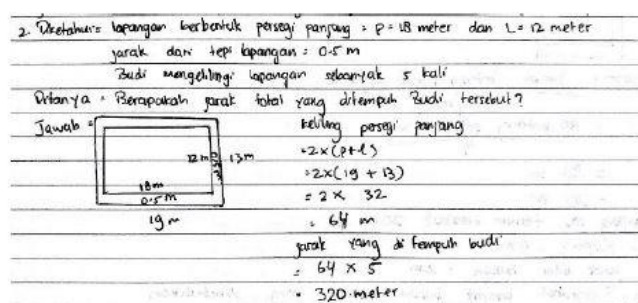 2. Diketahui = lapangan berbentuk persegi panjang : P = 18 meter dan L = 12 meter
jarak dari tepi lapangan = 0.5 m
Budi mengelilingi lapangan sebanyak 5 kali
Ditanya : Berapakah jarak total yang ditempuh Budi tersebut?
Jawab =
12 m
0.5 m
13 m
18 m
0.5 m
19 m
keliling persegi panjang
= 2 x (P + l)
= 2 x (19 + 13)
= 2 x 32
= 64 m
jarak yang di tempuh budi
= 64 x 5
= 320 meter